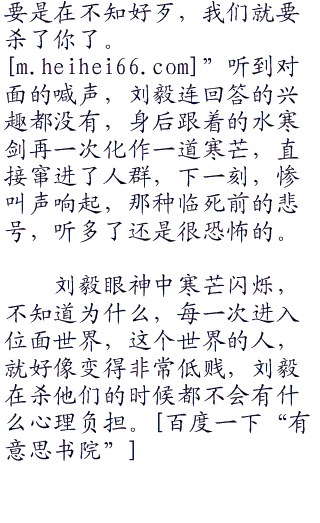 要是在不知好歹，我们就要
杀了你了。
[m.heihei66.com]”听到对
面的喊声，刘毅连回答的兴
趣都没有，身后跟着的水寒
剑再一次化作一道寒芒，直
接窜进了人群，下一刻，惨
叫声响起，那种临死前的悲
号，听多了还是很恐怖的。
刘毅眼神中寒芒闪烁，
不知道为什么，每一次进入
位面世界，这个世界的人，
就好像变得非常低贱，刘毅
在杀他们的时候都不会有什
么心理负担。[百度一下“有
意思书院”]